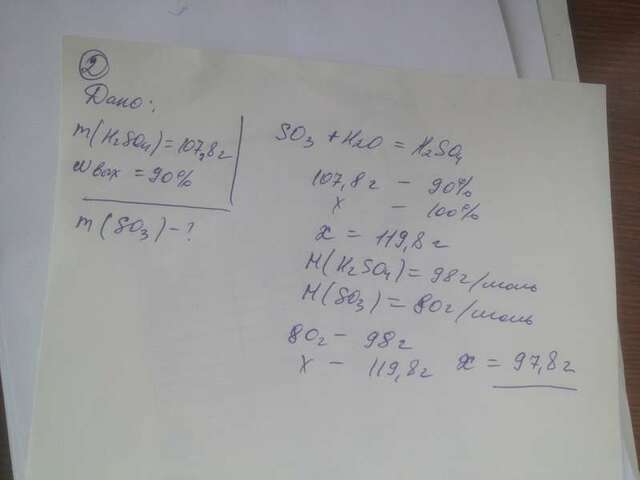 ②
Дано:
m(H₂SO₄)=107,8г
ωвых = 90%
m(SO₃)-?
SO₃ + H₂O = H₂SO₄
107,8г - 90%
x - 100%
x = 119,8г
M(H₂SO₄) = 98г/моль
M(SO₃) = 80г/моль
80г - 98г
x - 119,8г x = 97,8г